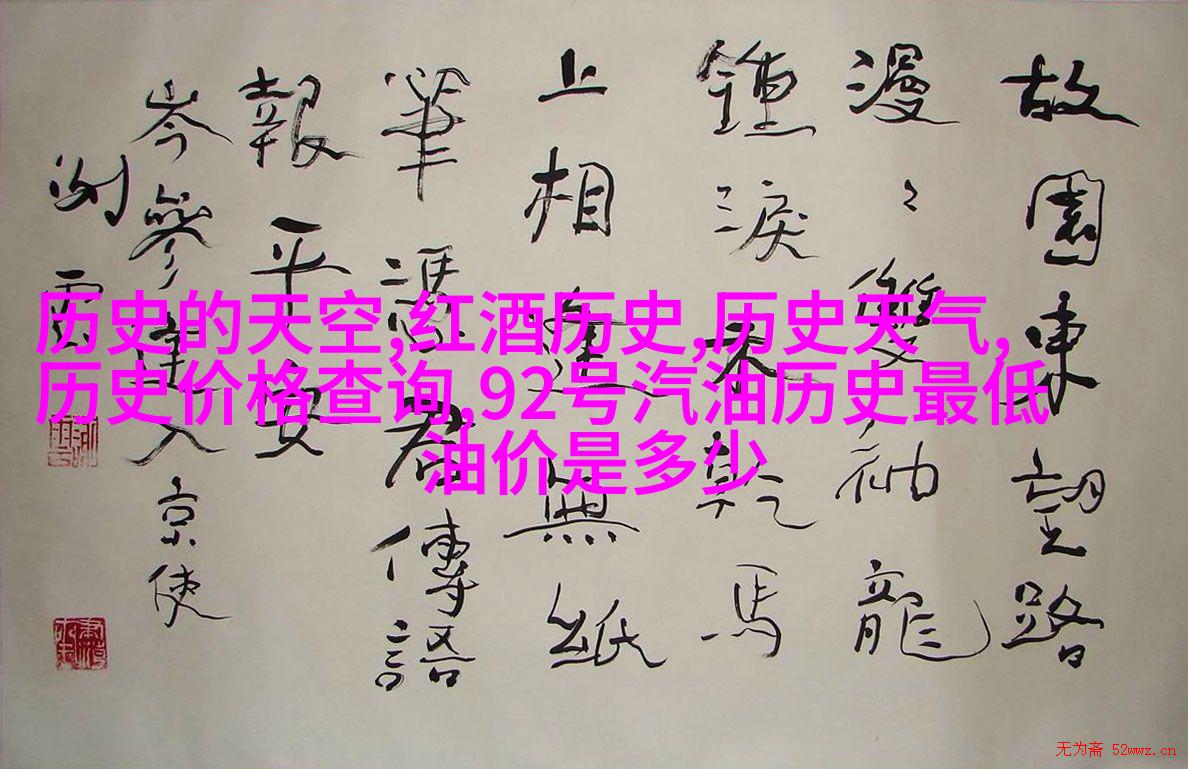 故園東望路
漫〻雙袖龍
鍾淚未乾馬
上相逢無紙
筆憑君傳語
報平安
岑參逢入京使
历史的天空,红酒历史,历史天气,
历史价格查询,92号汽油历史最低
油价是多少
无为斋 52wwz.cn